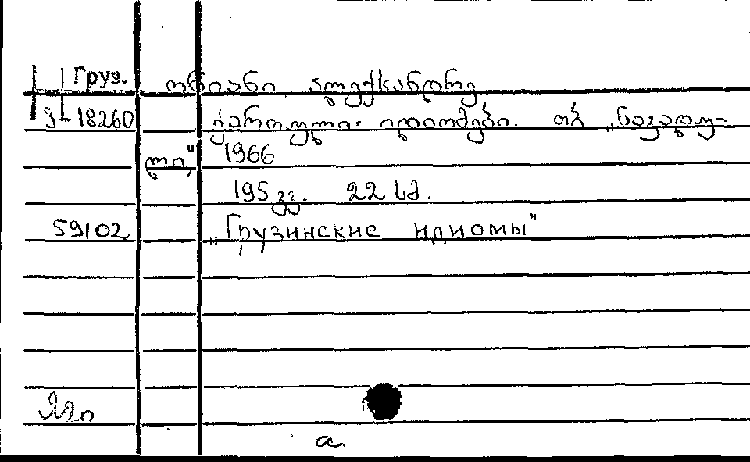 Груз. ონიანი, ალექსანდრე
3-18260 ქართული იდიომები. თბ. „ნაკადუ-
ლი" 1966
195 გვ. 22 სმ.
59102 „Грузинские идиомы"
а.